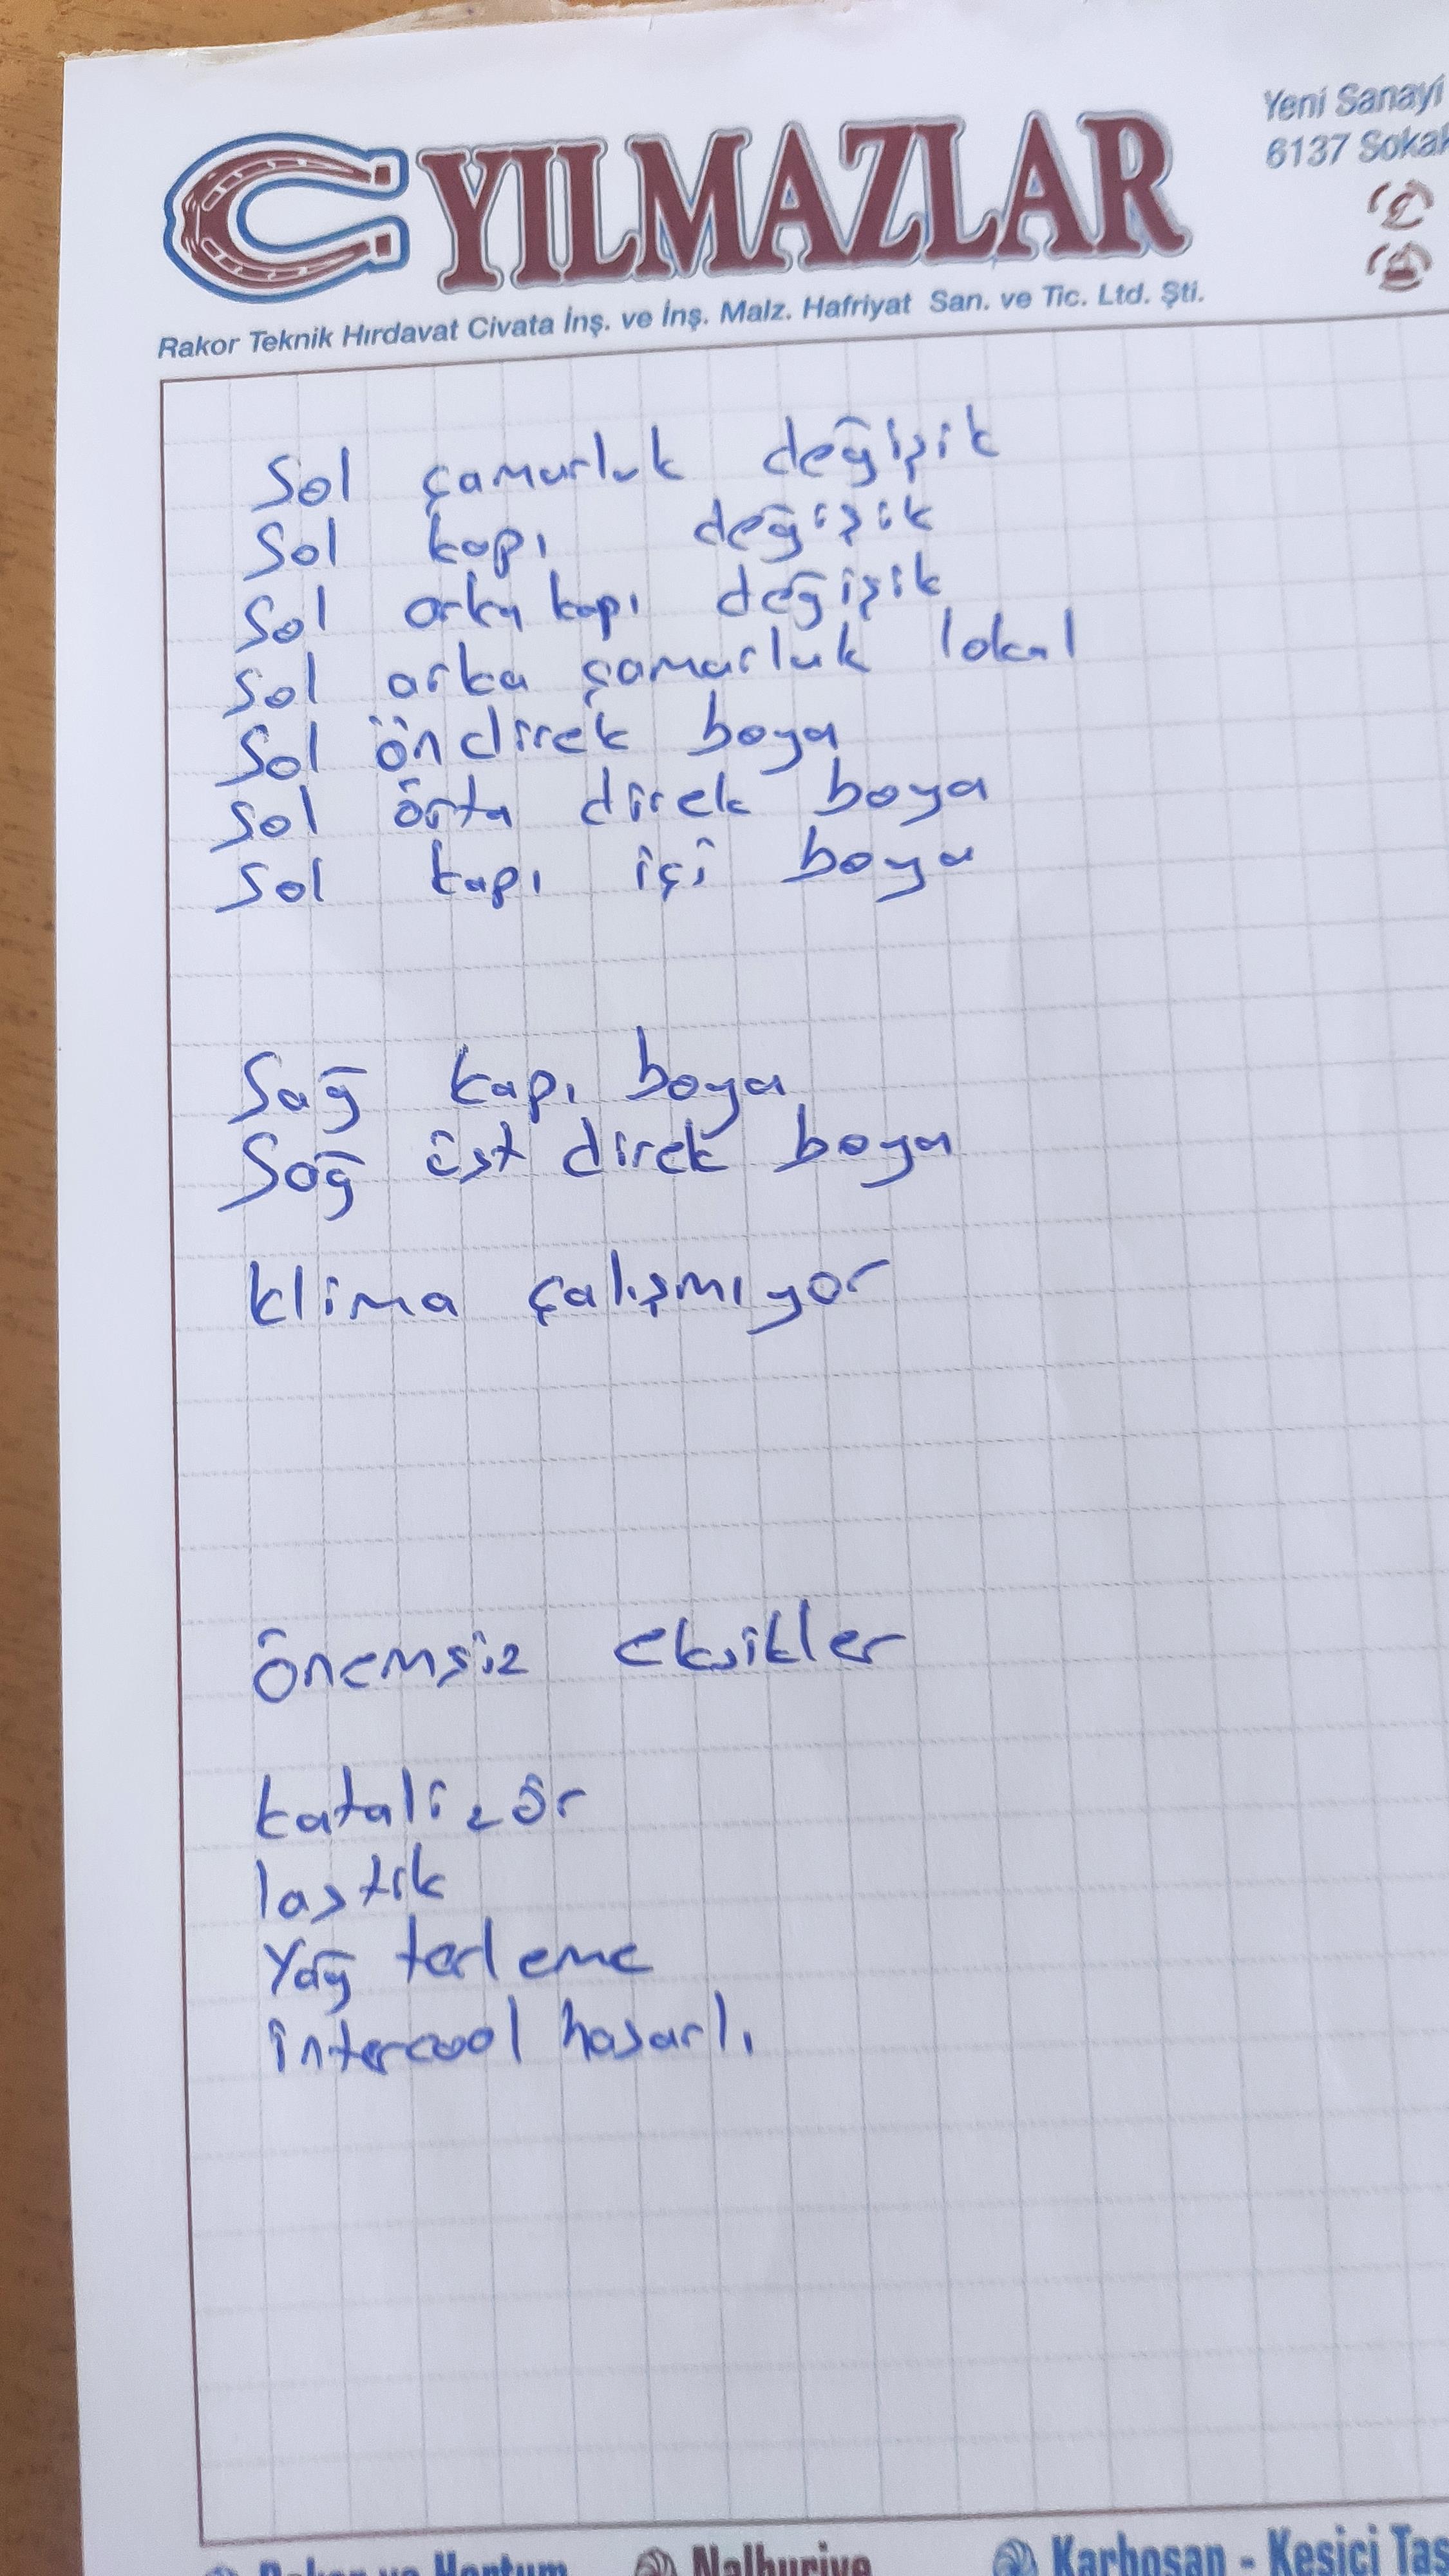 Yeni Sanayi
6137 Sokak
YILMAZLAR
Rakor Teknik Hırdavat Civata İnş. ve İnş. Malz. Hafriyat San. ve Tic. Ltd. Şti.
Sol çamurluk değişik
Sol kapı değişik
Sol arka kapı değişik
Sol arka çamurluk lokal
Sol ön direk boya
Sol orta direk boya
Sol kapı içi boya
Sağ kapı boya
Sağ üst direk boya
klima çalışmıyor
önemsiz eksikler
katalizör
lastik
Yağ terleme
intercool hasarlı
Nalburiye
Karbosan - Kesici Taş